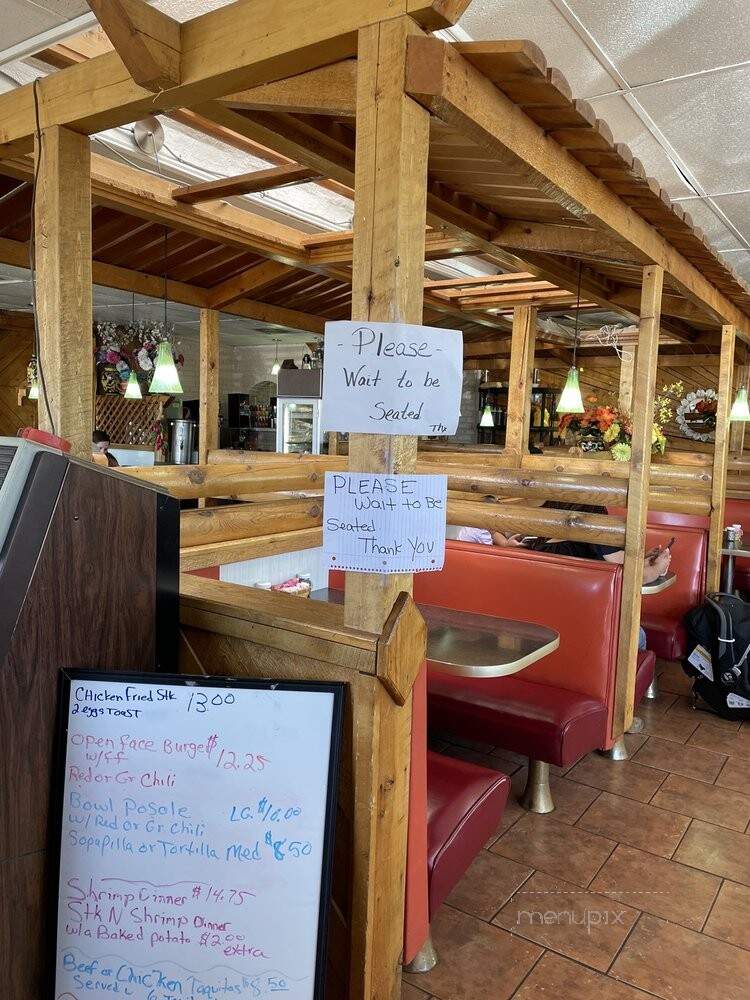 - Please -
Wait to be
Seated
Thx
PLEASE
Wait to Be
Seated
Thank You
Chicken Fried Stk 13.00
2 eggs Toast
Open face Burger $12.25
w/FF
Red or Gr Chili
Bowl Posole LG. $10.00
w/ Red or Gr Chili
Sopapilla or Tortilla Med $8.50
Shrimp Dinner $14.75
Stk N Shrimp Dinner
w/a Baked potato $2.00
extra
Beef or Chicken Taquitos 50
Served
menupix